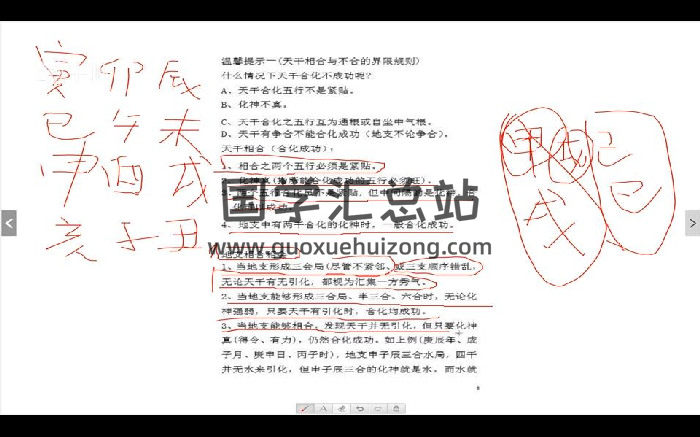 寅 卯 辰
巳 午 未
申 酉 戌
亥 子 丑
温馨提示一(天干相合与不合的界限规则)
什么情况下天干合化不成功呢?
A、天干合化五行不是紧贴。
B、化神不真。
C、天干合化之五行互为通根或自坐中气根。
D、天干有争合不能合化成功(地支不论争合)。
天干相合(合化成功):
1、相合之两个五行必须是紧贴。
4、地支中有两干合化的化神时。一般合化成功。
1、当地支形成三会局(尽管不紧邻、或三支顺序错乱,
无论天干有无引化,都视为汇集一方秀气。
2、当地支能够形成三合局、半三合、六合时,无论化
神强弱,只要天干有引化时,合化均成功。
3、当地支能够相合、发现天干并无引化,但只要化神
真(得令、有力)。仍然合化成功。如上例(庚辰年、戊
子月、庚申日、丙子时),地支申子辰三合水局,四干
并无水来引化,但申子辰三合的化神就是水。而水就
国学汇总站
www.guoxuehuizong.com
甲 戌 己
戌 巳
8
A